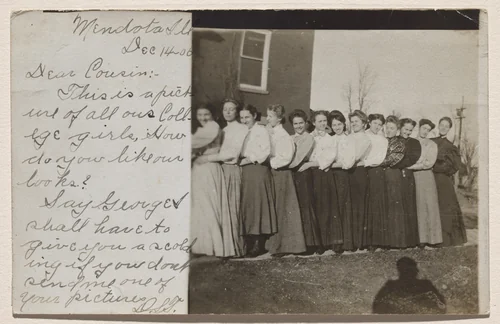 Mendota Ill
Dec 14 06
Dear Cousin:-
This is a pict
ure of all our Coll
ege girls, How
do you like our
looks?
Say George I
shall have to
give you a scold
ing if you dont
send me one of
your pictures